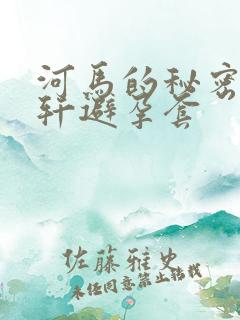 河馬的秘密
軒避年套
佐藤雅史
未任同意禁止转载